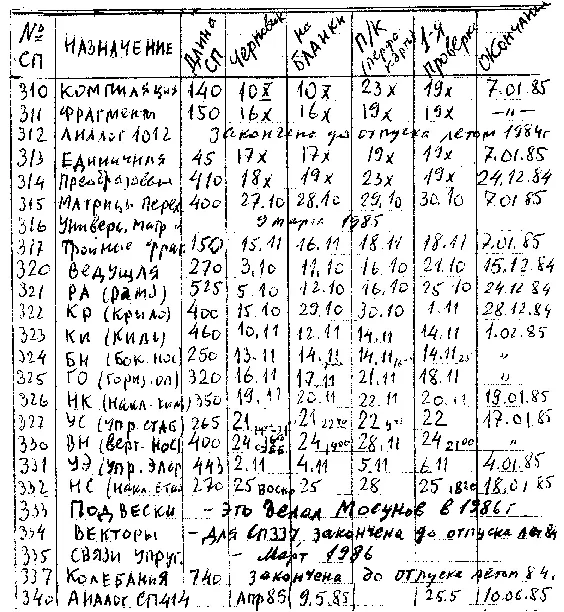 № СП НАЗНАЧЕНИЕ Длина СП Черновик на бланки П/К (перфокарты) 1-я проверка Окончание
310 Компиляция 140 10X 10X 23X 19X 7.01.85
311 Фрагменты 150 16X 16X 19X 19X —"—
312 Аналог 1012 Закончена до отпуска летом 1984г
313 Единичная 45 17X 17X 19X 19X 7.01.85
314 410 18X 19X 23X 19X 24.12.84
315 Матрицы Перех 400 27.10 28.10 29.10 30.10 7.01.85
316 Универс. матр 9 марта 1985
317 Тройные фраг 150 15.11 16.11 18.11 18.11 7.01.85
320 Ведущая 270 3.10 11.10 16.10 21.10 15.12.84
321 РА (рама) 525 5.10 12.10 16.10 25.10 24.12.84
322 КР (Крыло) 400 15.10 29.10 30.10 1.11 28.12.84
323 КИ (Киль) 460 10.11 12.11 14.11 14.11 1.02.85
324 БН (Бок. нос) 250 13.11 14.11 14.11 14.11 "
325 ГО (Гориз. оп) 320 16.11 17.11 21.11 18.11
326 НК (Накл. киль) 350 19.11 20.11 22.11 20.11 19.01.85
327 УС (Упр. стаб) 265 21 21 22 22 17.01.85
330 ВН (Верт. нос) 400 24 24 28.11 24 2100 "
331 УЭ (Упр. Элер) 443 2.11 4.11 5.11 6.11 4.01.85
332 НС (Накл. стаб) 270 25 Воскр 25 28 25 18.01.85
333 Подвески - Это делал Мосунов в 1986г
334 Векторы - Для СП337 закончена до отпуска лет 84
335 Связи Упруг. - Март 1986
337 Колебания 740 закончена до отпуска летом 84.
340 Аналог СП414 Апр 85 9.5.85 25.5 10.06.85